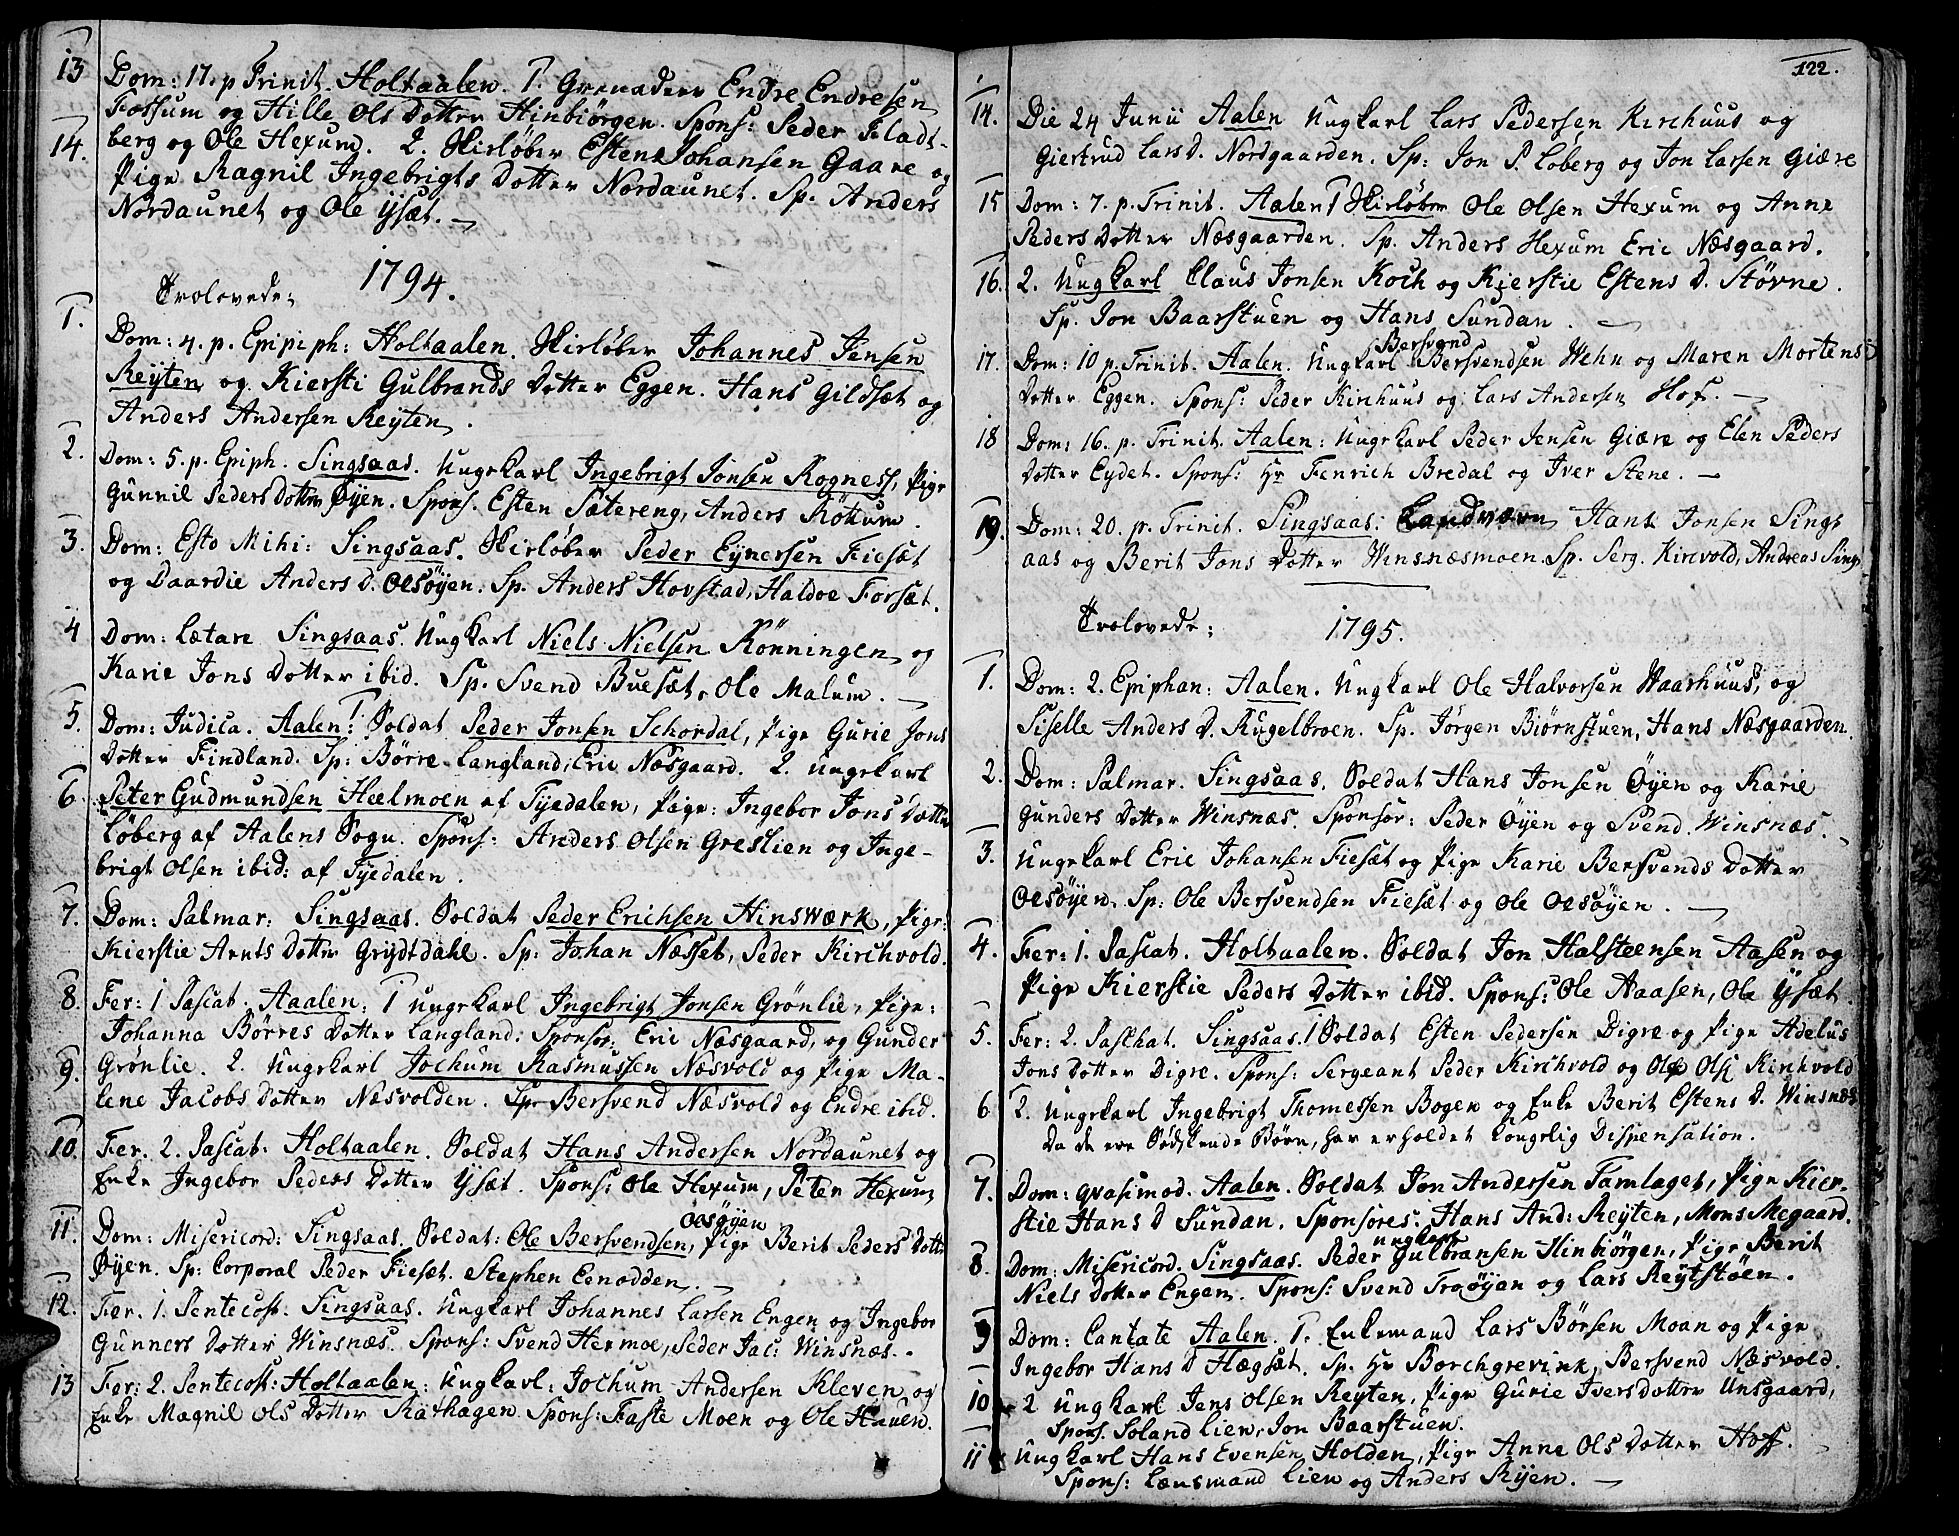 13 Dom: 17. p Trinit. Holtaalen. 1. Granadeer Endre Endresen
Fossum og Hille Ols Dotter Hinbiörgen. Spons: Peder Fladt-
14. berg og Ole Hexum. 2. Skirløber Esten Johansen Gaare og
Pige Ragnil Ingebrigts Dotter Nordaunet. Sp. Anders
Nordaunet og Ole Ysæt.
1794.
Trolovede:
1. Dom: 4. p. Epipiph: Holtaalen. Skirløber Johannes Jensen
Reyten og Kiersti Gulbrands Dotter Eggen. Hans Gildsæt og
Anders Andersen Reyten.
2. Dom: 5. p. Epiph. Singsaas. Ungekarl Ingebrigt Jonsen Rogness, Pige
Gunnil Peders Dotter Øyen. Spons. Esten Sætereng, Anders Röttum.
3. Dom: Esto Mihi: Singsaas. Skirløber Peder Eynersen Fiesæt
og Daardie Anders D. Oesöyen. Sp. Anders Hovstad, Haldoe Forsæt.
4 Dom: Lætare Singsaas. Ungkarl Niels Nielsen Rönningen og
Karie Jons Dotter ibid. Sp. Svend Buesæt, Ole Malum.
5. Dom: Judica. Aalen: 1 Soldat Peder Jonsen Schordal, Pige Gurie Jons
Dotter Findland. Sp: Börre Langland, Eric Næsgaard. 2. Ungekarl
6. Peter Gudmundsen Hælmoen af Tyedalen, Pige: Ingebor Jons Dotter
Löberg af Aalens Sogn. Spons: Anders Olsen Greslien og Inge-
brigt Olsen ibid: af Tyedalen.
7. Dom: Palmar: Singsaas. Soldat Peder Erichsen Hinswærk, Pige:
Kierstie Arnts Dotter Grydtdahl. Sp: Johan Næsset, Peder Kirchvold.
8. Fer: 1 Pascat. Aaalen. 1 Ungekarl Ingebrigt Jonsen Grönlie, Pige:
Johanna Börres Dotter Langland: Sponsor: Eric Næsgaard, og Gunder
9. Grönlie. 2. Ungekarl Jochum Rasmussen Næsvold og Pige Ma-
lene Jacobs Dotter Næsvolden. Sp. Bersvend Næsvold og Endre ibid.
10. Fer. 2. Pascat: Holtaalen. Soldat Hans Andersen Nordaunet og
Enke Ingebor Peders Dotter Ysæt. Spons: Ole Hexum, Peter Hexum
Oesøyen
11. Dom: Misericord: Singsaas. Soldat: Ole Bersvendsen, Pige Berit Peders Dotter
Øyen. Sp: Corporal Peder Fiesæt. Stephen Eenodden.
12. Fer. 1. Pentecost: Singsaas. Ungkarl Johannes Larsen Engen og Ingebor
Gunners Dotter Winsnæs. Spons: Svend Hermoe, Peder Jac: Winsnæs.
13 Fer: 2. Pentecost: Holtaalen: Ungkarl: Jochum Andersen Kleven og
Enke Magnil Ols Dotter Rathagen. Spons: Faste Moen og Ole Hauen.
122.
14. Die 24 Junii Aalen Ungkarl Lars Pedersen Kirchuus og
Giertrud Lars D. Nordgaarden. Sp: Jon P. Loberg og Jon Larsen Giære
15 Dom: 7. p. Trinit. Aalen 1 Skirløber Ole Olsen Hexum og Anne
Peders Dotter Næsgaarden. Sp. Anders Hexum Eric Næsgaard.
16. 2. Ungkarl Claus Jonsen Koch og Kierstie Estens D. Störne.
Sp. Jon Baarstuen og Hans Sundan.
Bersvend
17. Dom: 10 p. Trinit. Aalen. Ungkarl Bersvendsen Wehn og Maren Mortens
Dotter Eggen. Spons: Peder Kirchuus og Lars Andersen Hof.
18 Dom: 16. p. Trinit. Aalen: Ungekarl Peder Jensen Giære og Elen Peders
Dotter Eydet. Spons: Hr Fenrich Bredal og Iver Stene.
19. Dom: 20. p. Trinit. Singsaas: Landværn Hans Jonsen Sings
aas og Berit Jons Dotter Winsnæsmoen. Sp. Serg. Kirchvold, Andreas Sings
Trolovede: 1795.
1. Dom: 2. Epiphan: Aalen. Ungkarl Ole Halvorsen Waarhuus, og
Siselle Anders D. Kugelbroen. Sp. Jörgen Biörnstuen, Hans Næsgaarden.
2. Dom: Palmar. Singsaas. Soldat Hans Jonsen Öyen og Karie
Gunders Dotter Winsnæs. Sponsor: Peder Øyen og Svend Winsnæs.
3. Ungekarl Eric Johansen Fiesæt og Pige Karie Bersvends Dotter
Oesöyen. Sp: Ole Bersvendsen Fiesæt og Ole Oesöyen.
4. Fer: 1. Pascat. Holtaalen. Soldat Jon Halsteensen Aasen og
Pige Kierstie Peders Dotter ibid. Spons: Ole Aaasen, Ole Ysæt.
5. Fer: 2. Paschat. Singsaas. 1 Soldat Esten Pedersen Digre og Pige Adelus
Jons Dotter Digre. Spons: Sergeant Peder Kirchvold og Ole Ols: Kirchvold
6. 2. Ungekarl Ingebrigt Thomessen Bogen og Enke Berit Estens D. Winsnæs
Da de ere Sødskende Børn, har erholdet Kongelig Dispensation.
7. Dom: Qvasimod. Aalen. Soldat Jon Andersen Tamlaget, Pige Kier-
stie Hans D Sundan. Sponsores: Hans And: Reyten, Mons Megaard.
ungkarl
8. Dom: Misericord. Singsaas. Peder Gulbransen Hinbiörgen, Pige Berit
Niels Dotter Engen. Spons: Svend Troöyen og Lars Reytstöen.
9 Dom: Cantate Aalen. 1. Enkemand Lars Börsen Moan og Pige
Ingebor Hans D Hægsæt. Sp. Hr Borchgrevink, Bersvend Næsvold.
10 2 Ungkarl Jens Olsen Reyten, Pige Gurie Ivers dotter Unsgaard,
Spons. Soland Lien, Jon Baarstuen.
11 Ungkarl Hans Evensen Holden, Pige Anne Ols Dotter Hoff.
Spons: Lænsmand Lien og Anders Ryen.